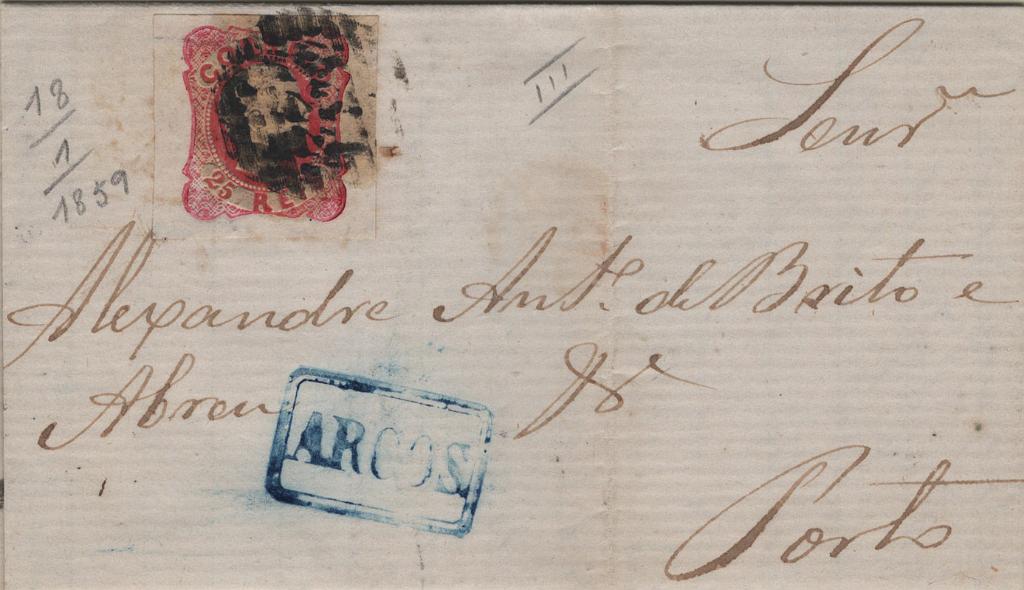 18
1
1859
CO
25 RE
III
Senr
Alexandre Anto. de Brito e
Abreu
ARGOS
Porto